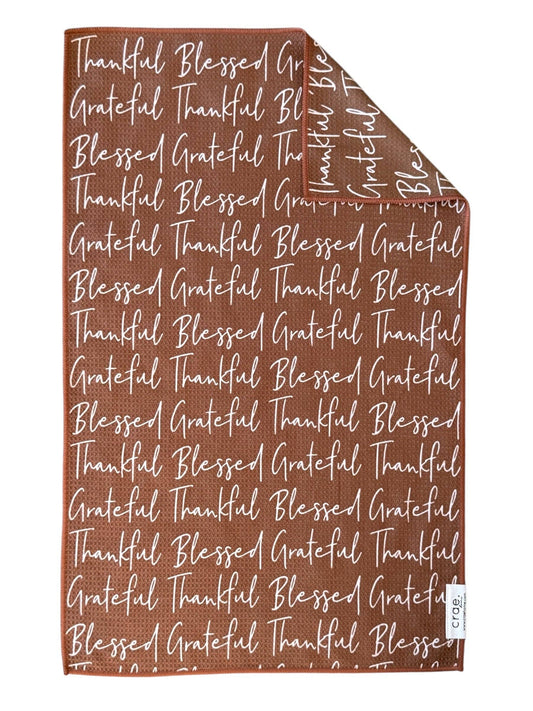 Thankful Blessed Gr
Grateful Thankful Bl
Blessed Grateful Tha
Thankful Blessed
Grateful Thankful Blessed Grateful
Blessed Grateful Thankful Blessed
Thankful Blessed Grateful Thankful
Grateful Thankful Blessed Grateful
Blessed Grateful Thankful Blessed
Thankful Blessed Grateful Thankful
Grateful Thankful Blessed Grateful
Thankful Blessed Grateful Thankful
Grateful Thankful Blessed Grateful
Blessed Grateful Thankful Blessed
Thankful Blessed
Grateful
Blessed
crae.